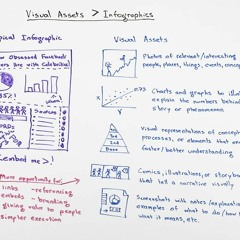 Visual Assets > Infographics
Typical Infographic
How Obsessed Facebook
Users Are with Celebrities
85%!
Sources
Embed me >!
More opportunity for:
links → referencing
embeds → branding
giving value to people
simpler execution
Visual Assets
Photos of relevant/interesting
people, places, things, events, concepts
0.73
Charts and graphs to illustrate
explain the numbers behind
story or phenomena
3rd
2nd
Base
Visual representations of concepts
processes, or elements that are
faster/better understanding
Comics, illustrations, or storyboards
that tell a narrative visually
Screenshots with notes/explanations
examples of what to do/how
what it means, etc.